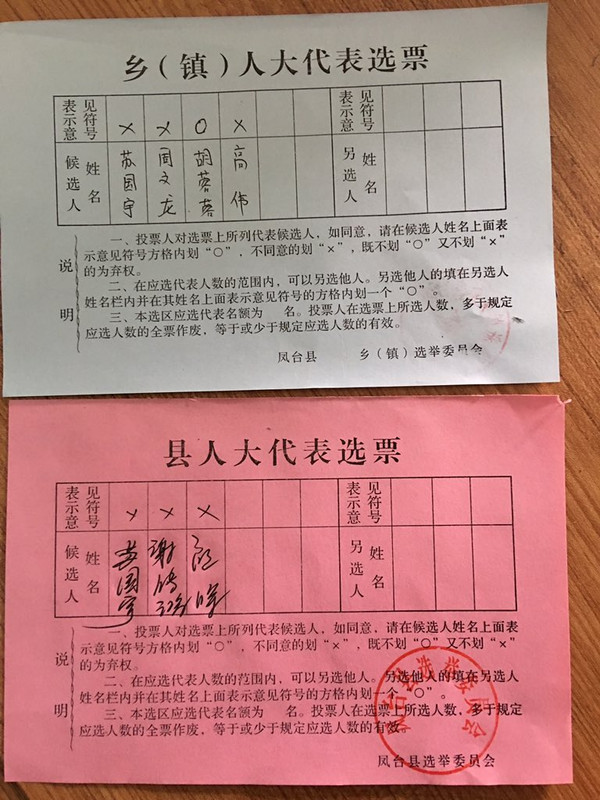 乡（镇）人大代表选票
表示意见符号 × × ○ × 表示意见符号
候选人姓名 苏国宇 周文龙 胡蓉蓉 高伟 另选人姓名
说明
一、投票人对选票上所列代表候选人，如同意，请在候选人姓名上面表
示意见符号方格内划“○”，不同意的划“×”，既不划“○”又不划“×”
的为弃权。
二、在应选代表人数的范围内，可以另选他人。另选他人的填在另选人
姓名栏内并在其姓名上面表示意见符号的方格内划一个“○”。
三、本选区应选代表名额为 名。投票人在选票上所选人数，多于规定
应选人数的全票作废，等于或少于规定应选人数的有效。
凤台县 乡（镇）选举委员会
县人大代表选票
表示意见符号 × × × 表示意见符号
候选人姓名 苏国宇 谢 另选人姓名
说明
一、投票人对选票上所列代表候选人，如同意，请在候选人姓名上面表
示意见符号方格内划“○”，不同意的划“×”，既不划“○”又不划“×”
的为弃权。
二、在应选代表人数的范围内，可以另选他人。另选他人的填在另选人
姓名栏内并在其姓名上面表示意见符号的方格内划一个“○”。
三、本选区应选代表名额为 名。投票人在选票上所选人数，多于规定
应选人数的全票作废，等于或少于规定应选人数的有效。
凤台县选举委员会
凤台县选举委员会